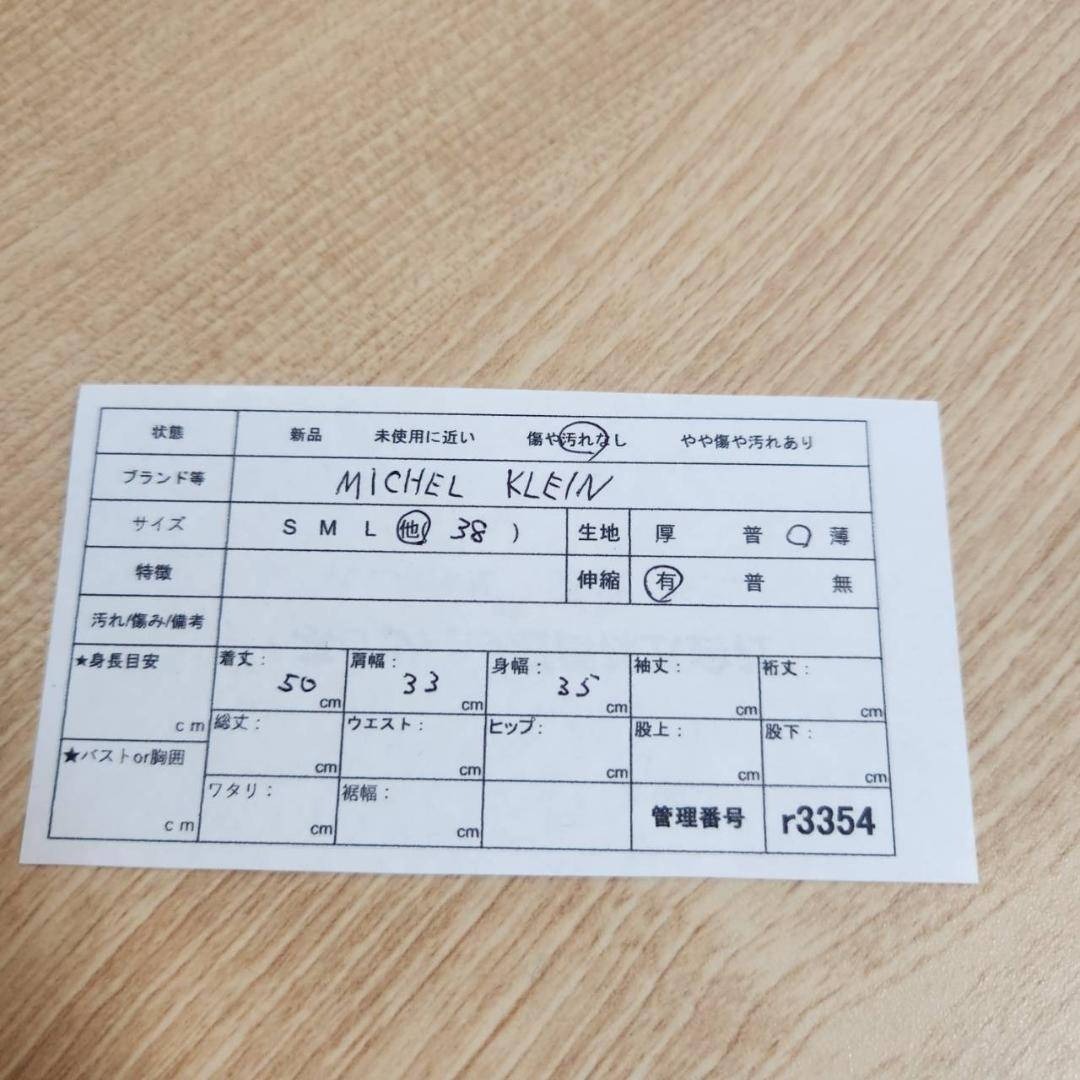 状態 新品 未使用に近い 傷や汚れなし やや傷や汚れあり
ブランド等 MICHEL KLEIN
サイズ S M L 他( 38 ) 生地 厚 普 薄
特徴 伸縮 有 普 無
汚れ/傷み/備考
★身長目安 cm 着丈: 50 cm 肩幅: 33 cm 身幅: 35 cm 袖丈: cm 裄丈: cm
総丈: cm ウエスト: cm ヒップ: cm 股上: cm 股下: cm
★バストor胸囲 cm ワタリ: cm 裾幅: cm 管理番号 r3354